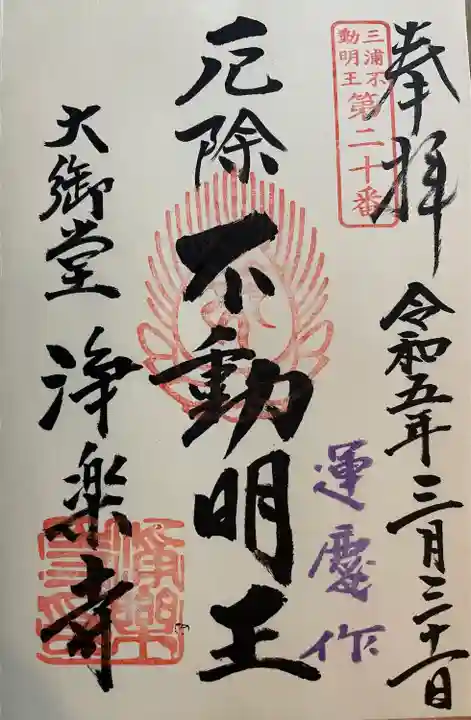 奉拝
三浦不
動明王
第二十番
令和五年三月三十一日
運慶作
厄除
不動明王
大御堂
浄楽寺